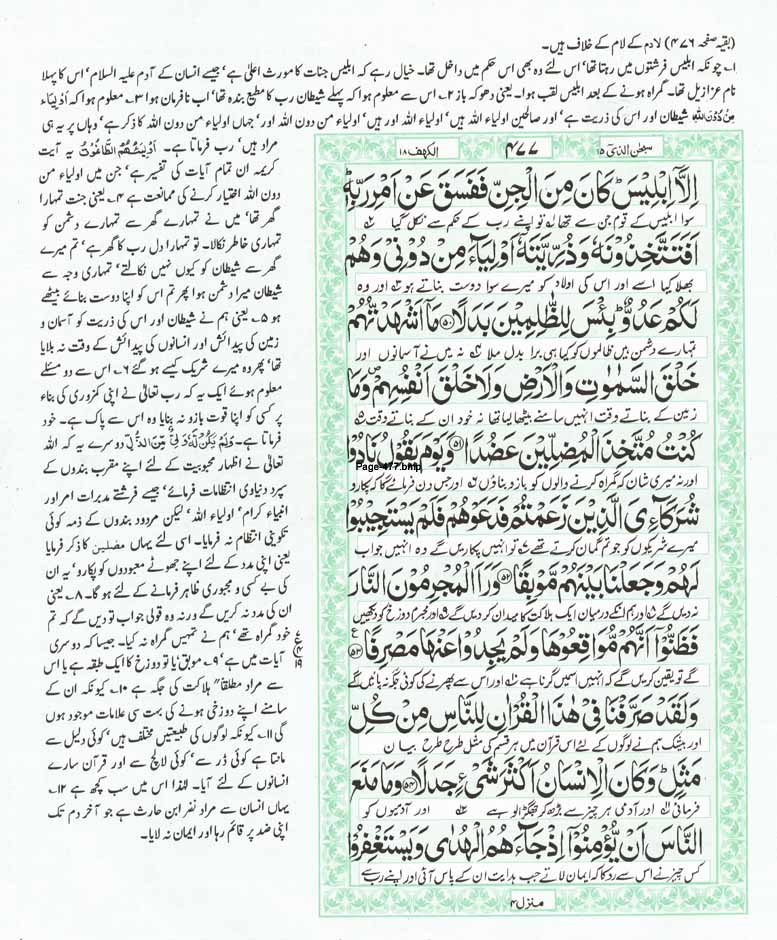 (بقیہ صفحہ ۴۷۶) لادم کے لام کے خلاف ہیں۔
۱۔ چونکہ ابلیس فرشتوں میں رہتا تھا' اس لئے وہ بھی اس حکم میں داخل تھا۔ خیال رہے کہ ابلیس جنات کا مورث اعلیٰ ہے' جیسے انسان کے آدم علیہ السلام' اس کا پہلا
نام عزازیل تھا۔ گمراہ ہونے کے بعد ابلیس لقب ہوا۔ یعنی دھوکہ باز ۲۔ اس سے معلوم ہوا کہ پہلے شیطان رب کا مطیع بندہ تھا' اب نافرمان ہوا ۳۔ معلوم ہوا کہ اَوْلِیَآءَ
مِنْ دُوْنِ اللّٰہِ شیطان اور اس کی ذریت ہے' اور صالحین اولیاء اللہ ہیں' اولیاء اللہ اور ہیں' اولیاء من دون اللہ اور' جہاں اولیاء من دون اللہ کا ذکر ہے' وہاں پر یہ ہی
مراد ہیں' رب فرماتا ہے۔ اَوْلِیٰٓئُھُمُ الطَّاغُوْتُ یہ آیت
کریمہ ان تمام آیات کی تفسیر ہے' جن میں اولیاء من
دون اللہ اختیار کرنے کی ممانعت ہے ۴۔ یعنی جنت تمہارا
گھر تھا' میں نے تمہارے گھر سے تمہارے دشمن کو
تمہاری خاطر نکالا۔ تو تمہارا دل رب کا گھر ہے' تم میرے
گھر سے شیطان کو کیوں نہیں نکالتے' تمہاری وجہ سے
شیطان میرا دشمن ہوا پھر تم اس کو اپنا دوست بنائے بیٹھے
ہو ۵۔ یعنی ہم نے شیطان اور اس کی ذریت کو آسمان و
زمین کی پیدائش اور انسانوں کی پیدائش کے وقت نہ بلایا
تھا' پھر وہ میرے شریک کیسے ہو گئے ۶۔ اس سے دو مسئلے
معلوم ہوئے ایک یہ کہ رب تعالیٰ نے اپنی کمزوری کی بناء
پر کسی کو اپنا قوت بازو نہ بنایا وہ اس سے پاک ہے۔ خود
فرماتا ہے۔ وَلَمْ یَکُنْ لَّہٗ وَلِیٌّ مِّنَ الذُّلِّ دوسرے یہ کہ اللہ
تعالیٰ نے اظہار محبوبیت کے لئے اپنے مقرب بندوں کے
سپرد دنیاوی انتظامات فرمائے' جیسے فرشتے مدبرات امر اور
انبیاء کرام' اولیاء اللہ' لیکن مردود بندوں کے ذمہ کوئی
تکوینی انتظام نہ فرمایا۔ اسی لئے یہاں مضلین کا ذکر فرمایا
یعنی اپنی مدد کے لئے اپنے جھوٹے معبودوں کو پکارو' یہ ان
کی بے کسی و مجبوری ظاہر فرمانے کے لئے ہو گا۔ ۸۔ یعنی
ان کی مدد نہ کریں گے ورنہ وہ قولی جواب تو دیں گے کہ تم
خود گمراہ تھے' ہم نے تمہیں گمراہ نہ کیا۔ جیسا کہ دوسری
آیات میں ہے' ۹۔ موبق' یا تو دوزخ کا ایک طبقہ ہے یا اس
سے مراد مطلقاً" ہلاکت کی جگہ ہے ۱۰۔ کیونکہ ان کے
سامنے اپنے دوزخی ہونے کی بہت سی علامات موجود ہوں
گی ۱۱۔ کیونکہ لوگوں کی طبیعتیں مختلف ہیں' کوئی دلیل سے
مانتا ہے کوئی ڈر سے' کوئی لالچ سے اور قرآن سارے
انسانوں کے لئے آیا۔ لہٰذا اس میں سب کچھ ہے ۱۲۔
یہاں انسان سے مراد نضر ابن حارث ہے جو آخر دم تک
اپنی ضد پر قائم رہا اور ایمان نہ لایا۔
سبحٰن الذی ۱۵
۴۷۷
الکھف ۱۸
اِلَّاۤ اِبْلِیْسَ کَانَ مِنَ الْجِنِّ فَفَسَقَ عَنْ اَمْرِ رَبِّهٖ
سوا ابلیس کے قوم جن سے تھا لہ تو اپنے رب کے حکم سے نکل گیا
اَفَتَتَّخِذُوْنَهٗ وَذُرِّیَّتَهٗۤ اَوْلِیَآءَ مِنْ دُوْنِیْ وَهُمْ
بھلا کیا اسے اور اس کی اولاد کو میرے سوا دوست بناتے ہو اور وہ
لَکُمْ عَدُوٌّ بِئْسَ لِلظّٰلِمِیْنَ بَدَلًا ﴿۵۰﴾ مَاۤ اَشْهَدْتُّهُمْ
تمہارے دشمن ہیں ظالموں کو کیا ہی برا بدل ملا نہ میں نے آسمانوں اور
خَلْقَ السَّمٰوٰتِ وَالْاَرْضِ وَلَا خَلْقَ اَنْفُسِهِمْ وَمَا
زمین کے بناتے وقت انہیں سامنے بٹھا لیا تھا نہ خود ان کے بناتے وقت
کُنْتُ مُتَّخِذَ الْمُضِلِّیْنَ عَضُدًا ﴿۵۱﴾ وَیَوْمَ یَقُوْلُ نَادُوْا
Page-477.bmp
اور نہ میری شان کہ گمراہ کرنے والوں کو بازو بناؤں اور جس دن فرمائے گا کہ پکارو
شُرَکَآءِیَ الَّذِیْنَ زَعَمْتُمْ فَدَعَوْهُمْ فَلَمْ یَسْتَجِیْبُوْا
میرے شریکوں کو جو تم گمان کرتے تھے تو انہیں پکاریں گے وہ انہیں جواب
لَهُمْ وَجَعَلْنَا بَیْنَهُمْ مَّوْبِقًا ﴿۵۲﴾ وَرَاَ الْمُجْرِمُوْنَ النَّارَ
نہ دیں گے اور ہم انکے درمیان ایک ہلاکت کا میدان کر دیں گے اور مجرم دوزخ کو دیکھیں
فَظَنُّوْۤا اَنَّهُمْ مُّوَاقِعُوْهَا وَلَمْ یَجِدُوْا عَنْهَا مَصْرِفًا ﴿۵۳﴾
ع ۱۹
گے تو یقین کریں گے کہ انہیں اسمیں گرنا ہے اور اس سے پھرنے کی کوئی جگہ نہ پائیں گے
وَلَقَدْ صَرَّفْنَا فِیْ هٰذَا الْقُرْاٰنِ لِلنَّاسِ مِنْ کُلِّ
اور بیشک ہم نے لوگوں کے لئے اس قرآن میں ہر قسم کی مثل طرح طرح بیان
مَثَلٍ وَکَانَ الْاِنْسَانُ اَکْثَرَ شَیْءٍ جَدَلًا ﴿۵۴﴾ وَمَا مَنَعَ
فرمائی اور آدمی ہر چیز سے بڑھ کر جھگڑالو ہے اور آدمیوں کو
النَّاسَ اَنْ یُّؤْمِنُوْۤا اِذْ جَآءَهُمُ الْهُدٰی وَیَسْتَغْفِرُوْا
کس چیز نے اس سے روکا کہ ایمان لاتے جب ہدایت ان کے پاس آئی اور اپنے رب سے
منزل ۴